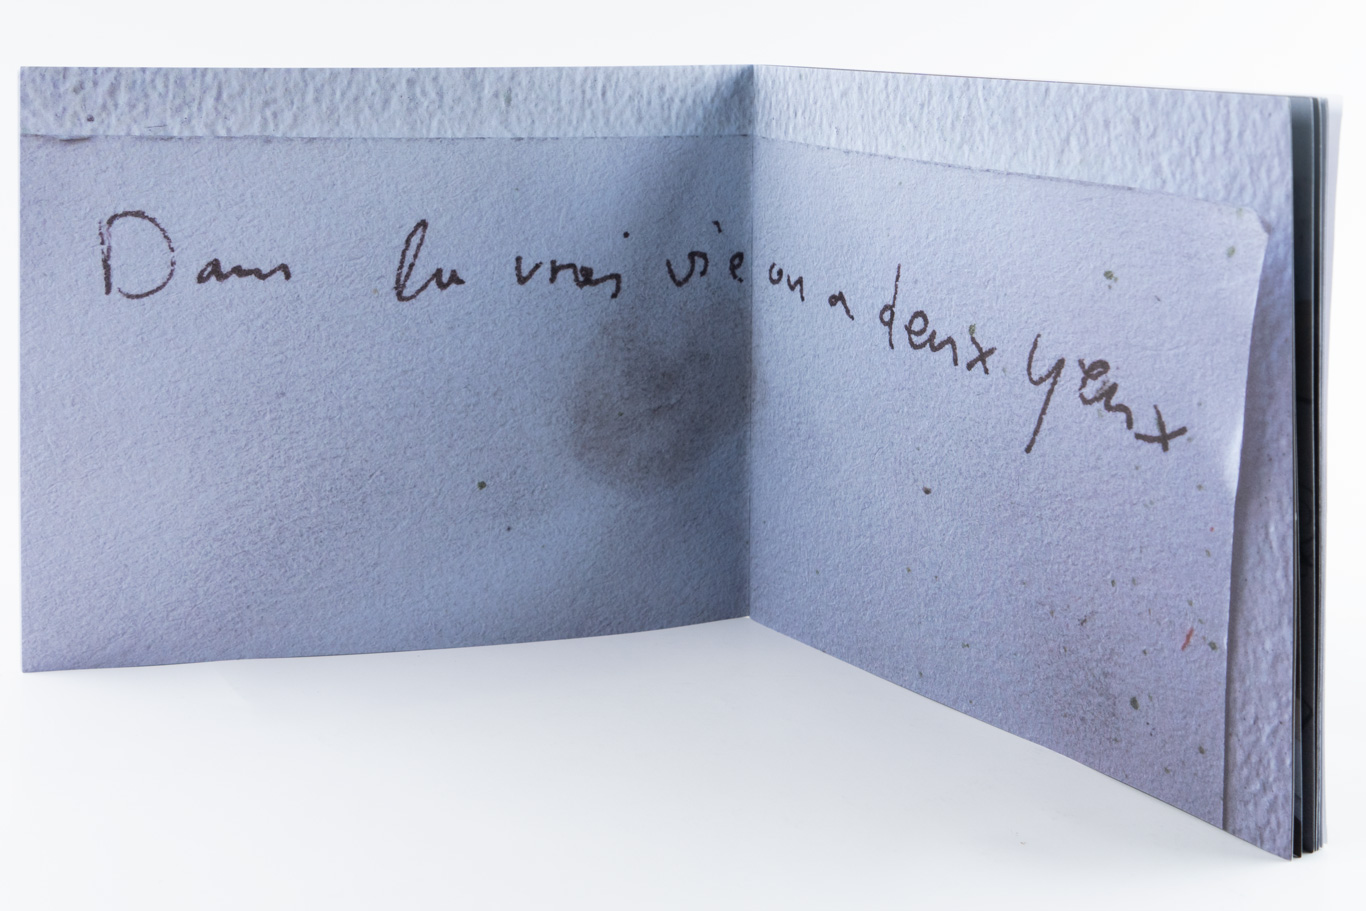 Dans la vrai vie on a deux yeux